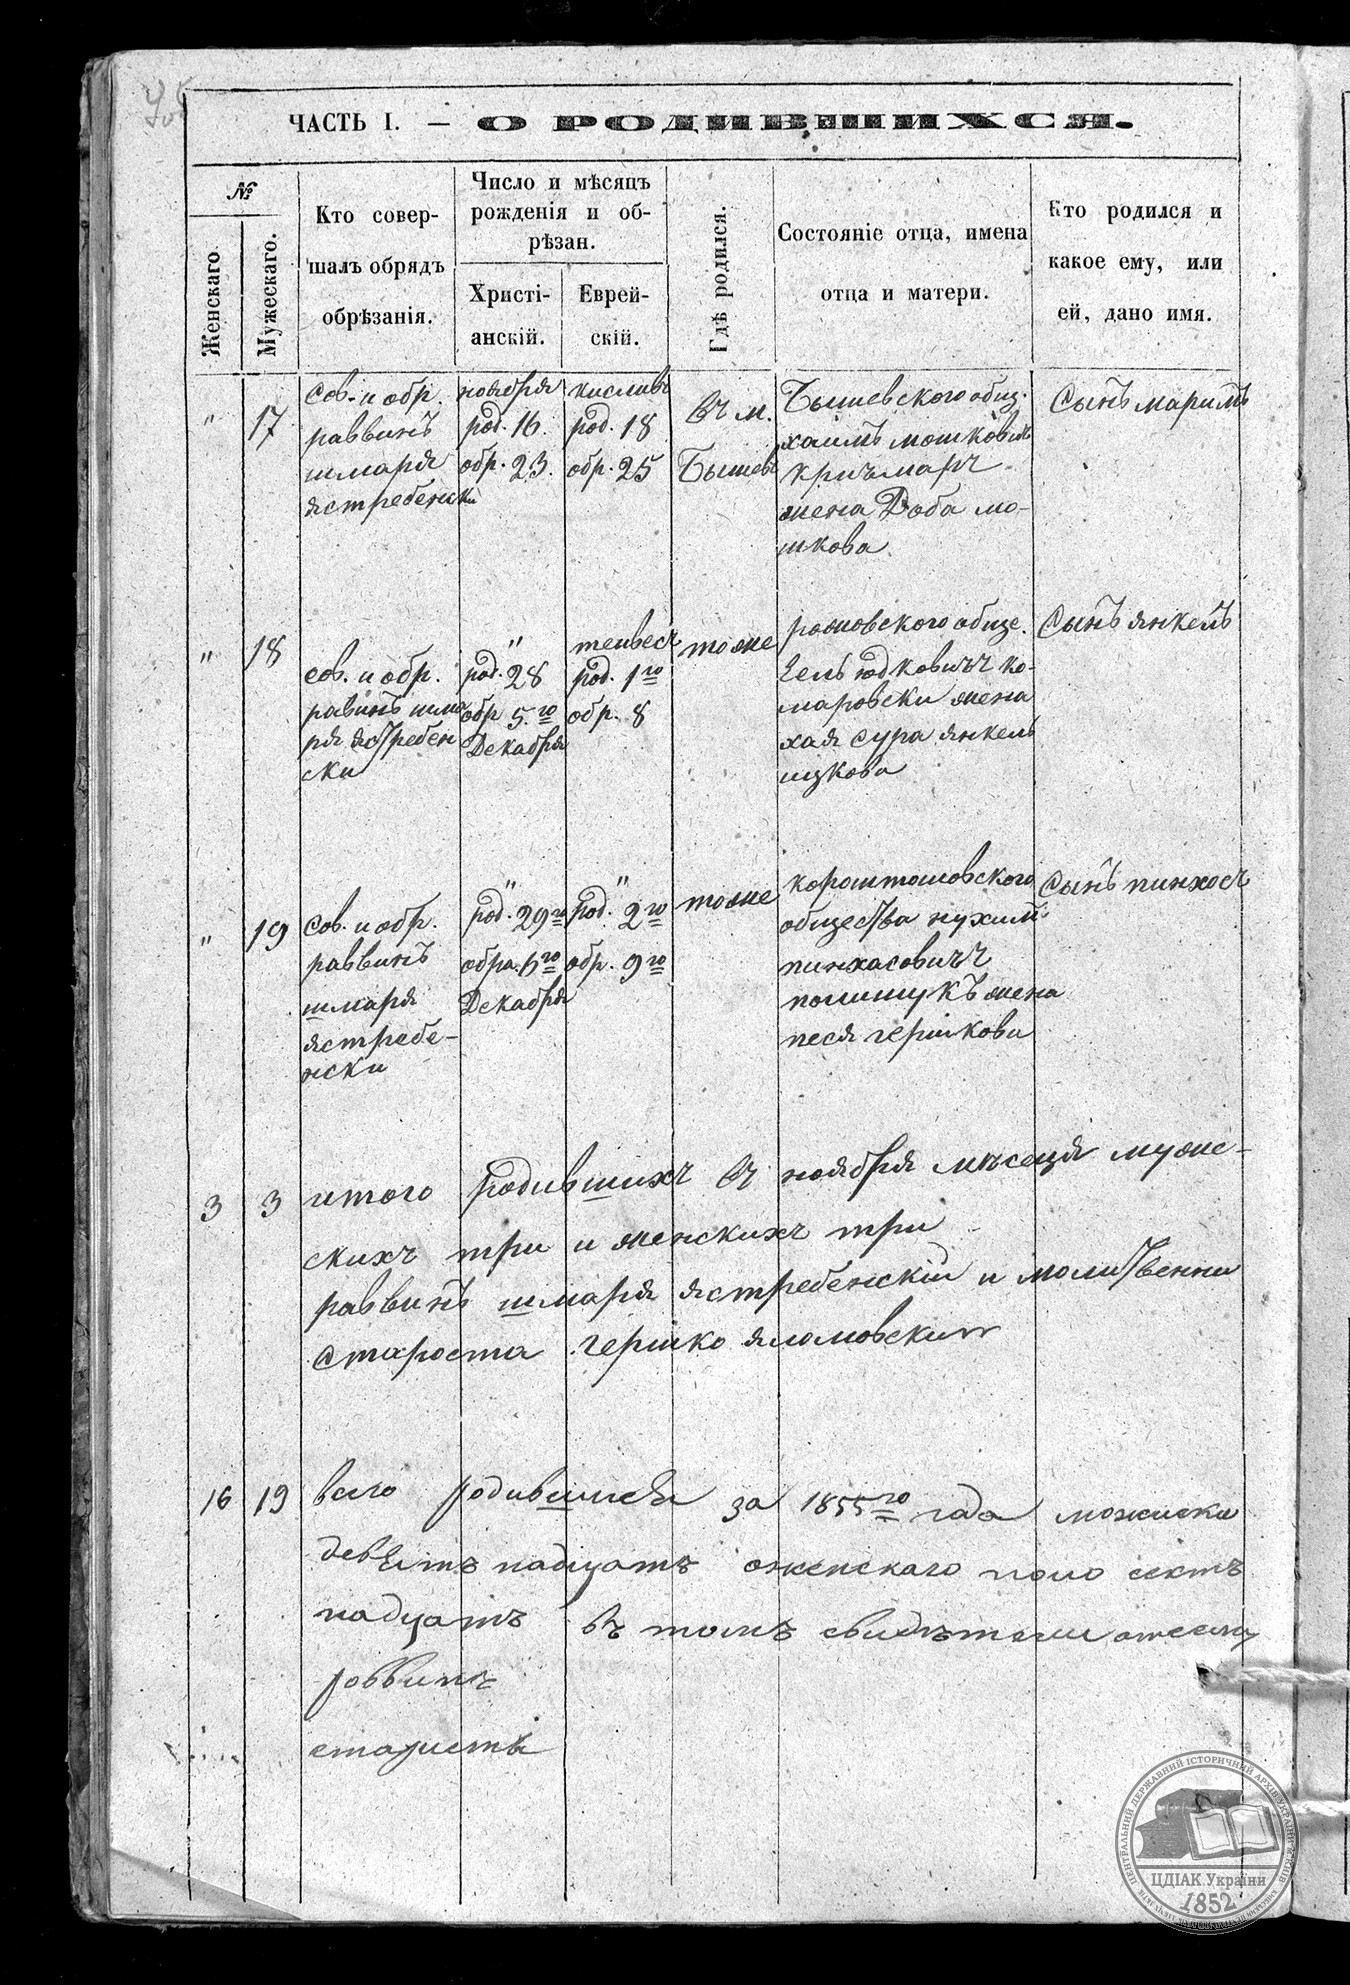 ЧАСТЬ I. — О РОДИВШИХСЯ.
№
Женскаго
Мужескаго.
Кто совер-
шалъ обрядъ
обрѣзанія.
Число и мѣсяцъ
рожденія и об-
рѣзан.
Христі-
анскій.
Еврей-
скій.
Гдѣ родился.
Состояніе отца, имена
отца и матери.
Кто родился и
какое ему, или
ей, дано имя.
" 17
сов. и обр.
раввинъ
шмаря
ястребенски
ноября
род. 16.
обр. 23.
кисливъ
род. 18
обр. 25
въ м.
Бышевъ
Бышевского общ.
хаимъ мошковичъ
кричмаръ
жена Доба мо-
шкова
Сынъ маримъ
" 18
сов. и обр.
равинъ шма
ря ястребен
ски
"
род. 28
обр 5.го
Декабря
тейвесъ
род. 1го
обр. 8
тоже
рожовского обще.
юдковичъ ко-
маровски жена
хая сура янкель
ицкова
Сынъ янкель
" 19
сов. и обр.
раввинъ
шмаря
ястребе-
нски
"
род. 29го
обра. 6го
Декабря
"
род. 2го
обр. 9го
тоже
корошошовского
общества нухимъ
пинхасовичъ
полищукъ жена
песя гершкова
Сынъ пинхосъ
3 3 итого родившихъ въ ноября мѣсеця муже-
скихъ три и женскихъ три
раввинъ шмаря ястребенскій и молитвенни
староста гершко
16 19 всего родившися за 1855го года можеска
девять надцать оженскаго поло сестъ
надцать въ томъ свидѣтели
роввинъ
старистъ
ЦЕНТРАЛЬНИЙ ДЕРЖАВНИЙ ІСТОРИЧНИЙ АРХІВ УКРАЇНИ, М. КИЇВ
ЦДІАК України
1852